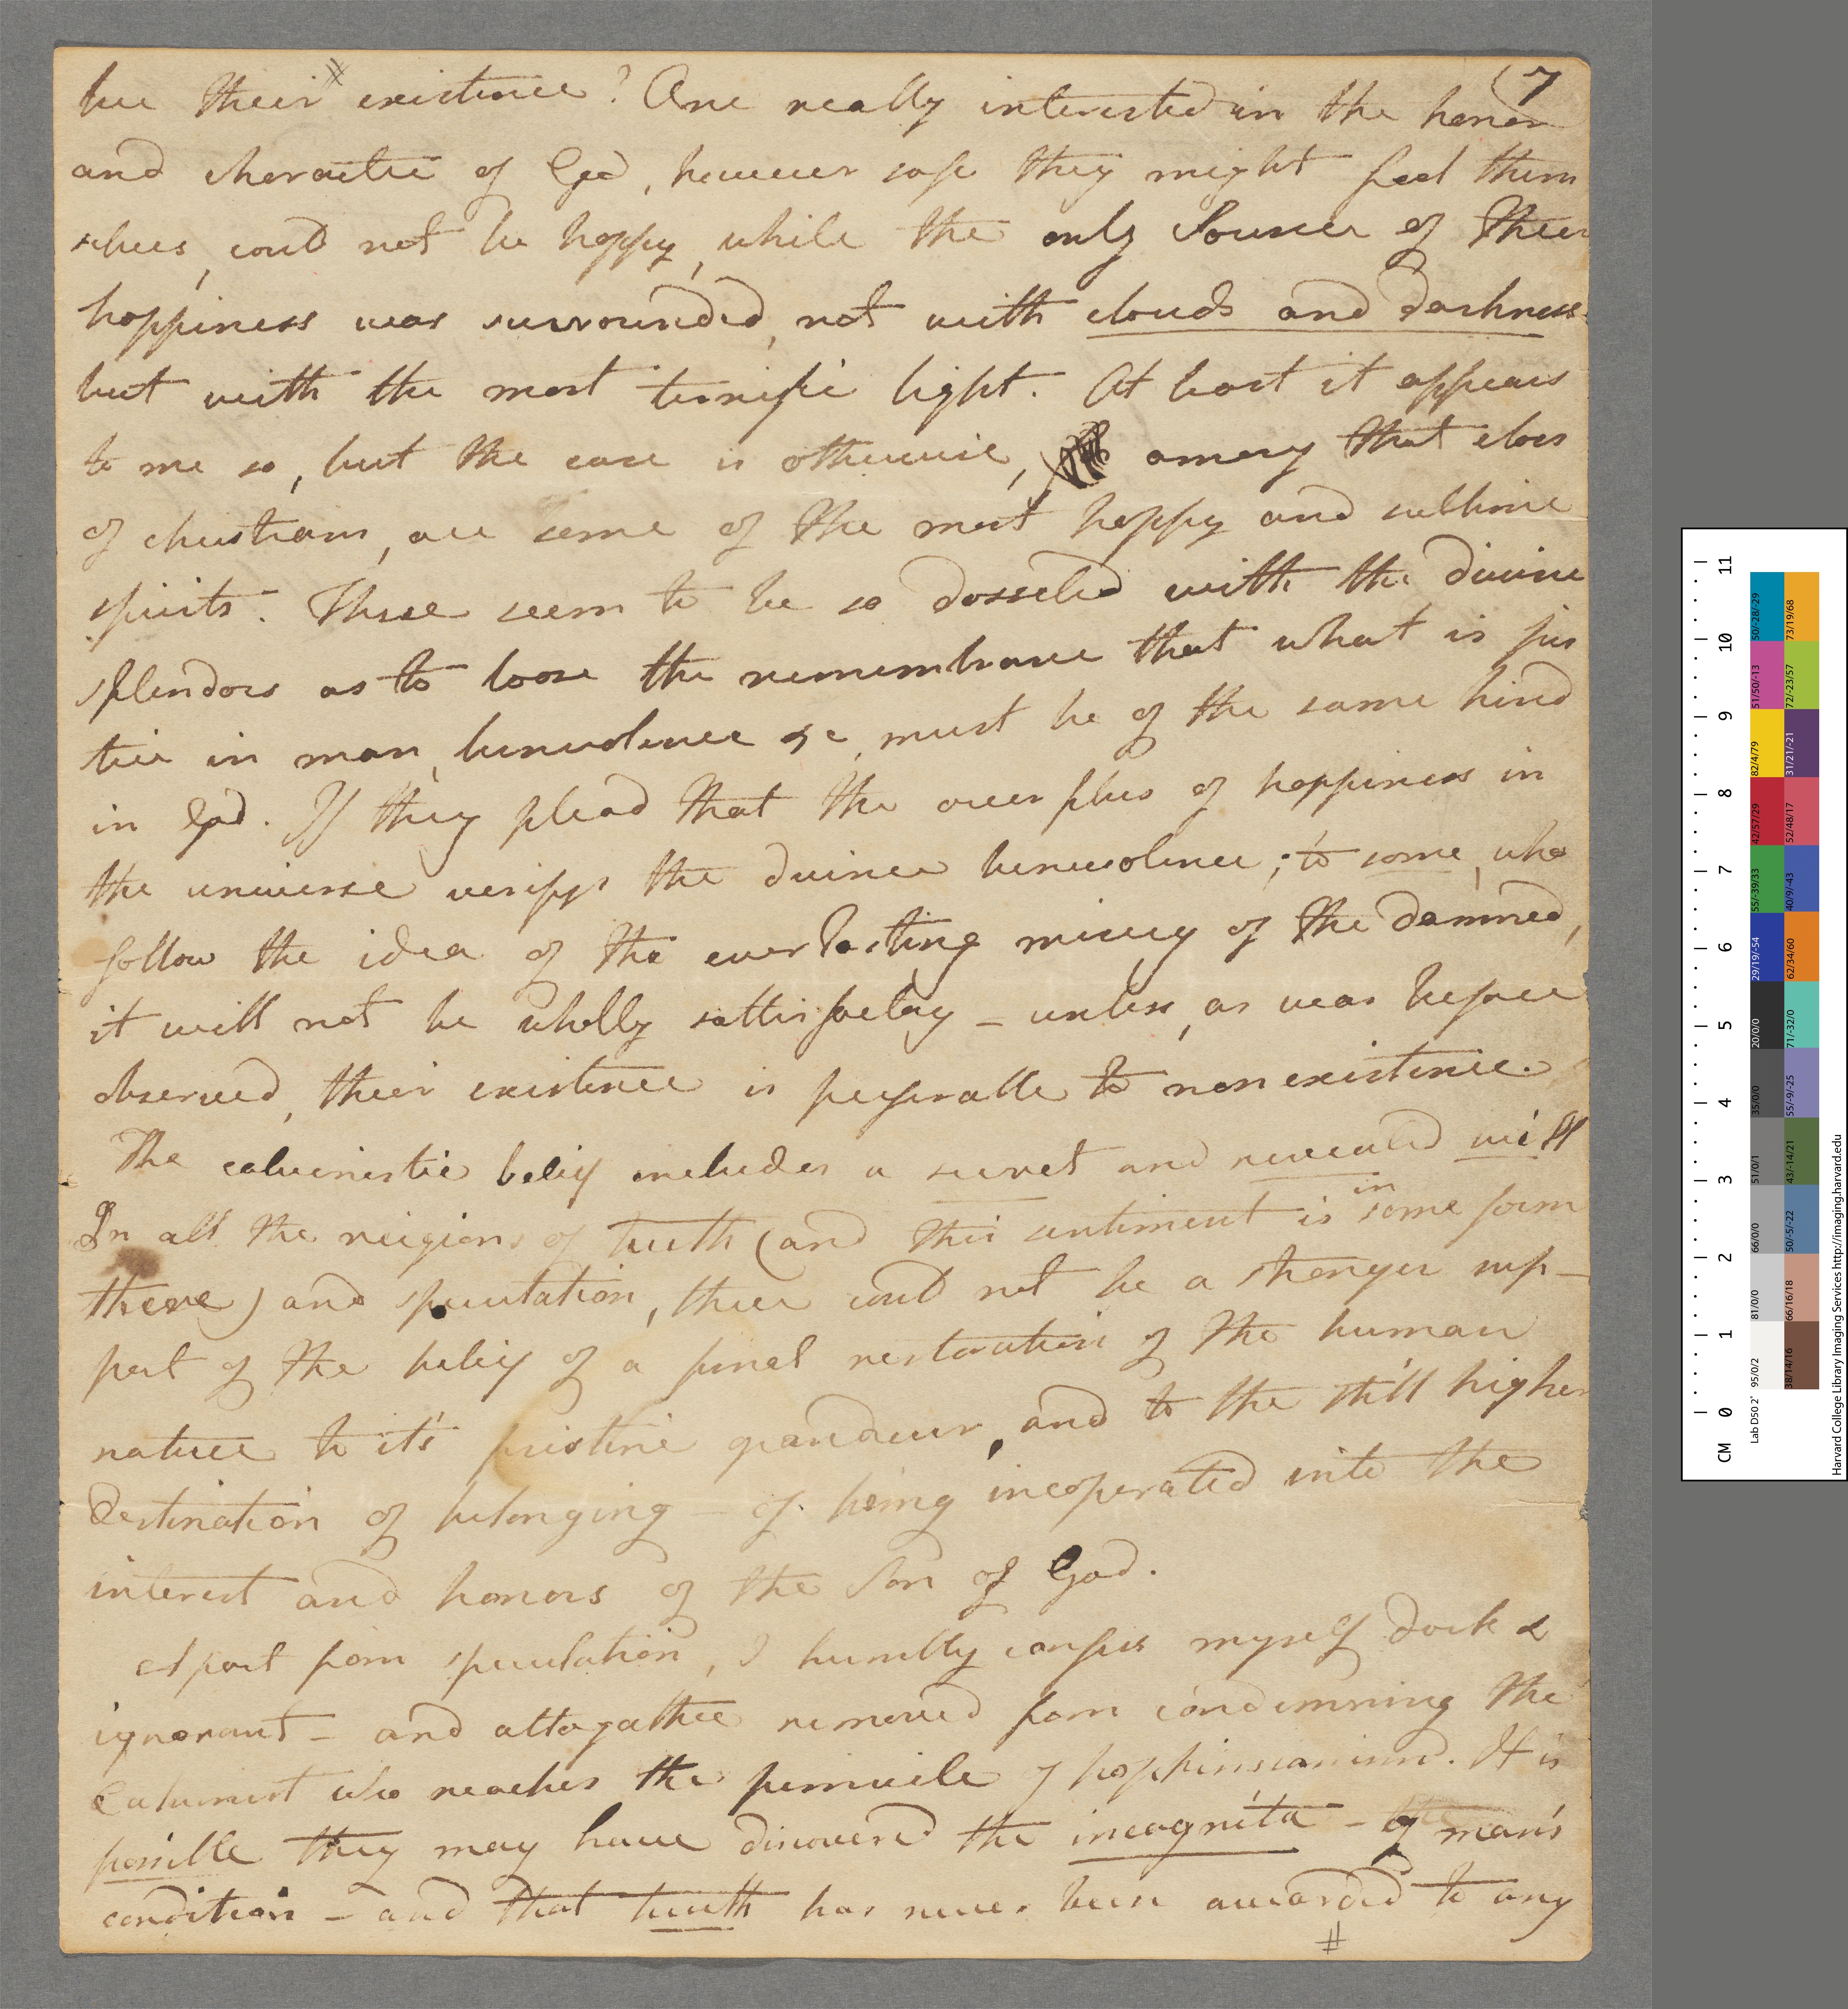 (7
be their existence? One really interested in the honor
and charactre of God, however safe they might feel them
selves, could not be happy, while the only Source of their
happiness was surrounded, not with clouds and darkness
but with the most terrific light. At least it appears
to me so, but the case is otherwise, among that class
of christians, are some of the most happy and sublime
spirits. These seem to be so dosseled with the divine
splendors as to loose the remembrance that what is jus
tice in man, benevolence &c, must be of the same kind
in God. If they plead that the over plus of happiness in
the universe verifys the divine benevolence; to some, who
follow the idea of the everlasting misery of the damned,
it will not be wholly sattisfactory – unless, as was before
observed, their existence is perferable to non existence.
The calvinistic belief includes a secret and revealed will
In all the reigions of truth (and this sentiment is in some form
there) and speculation, there could not be a stronger sup–
port of the belief of a final restoration of the human
nature to it's pristine grandeur, and to the still higher
destination of belonging – of being incoperated into the
interest and honors of the Son of God.
Apart from speculation, I humbly confess myself dark &
ignorant – and altogather removed from condemning the
Calvinist who reaches the pinnicle of hopkinsianism. It is
possible they may have discovered the incognita – of man's
condition – and that truth has never been awarded to any
#